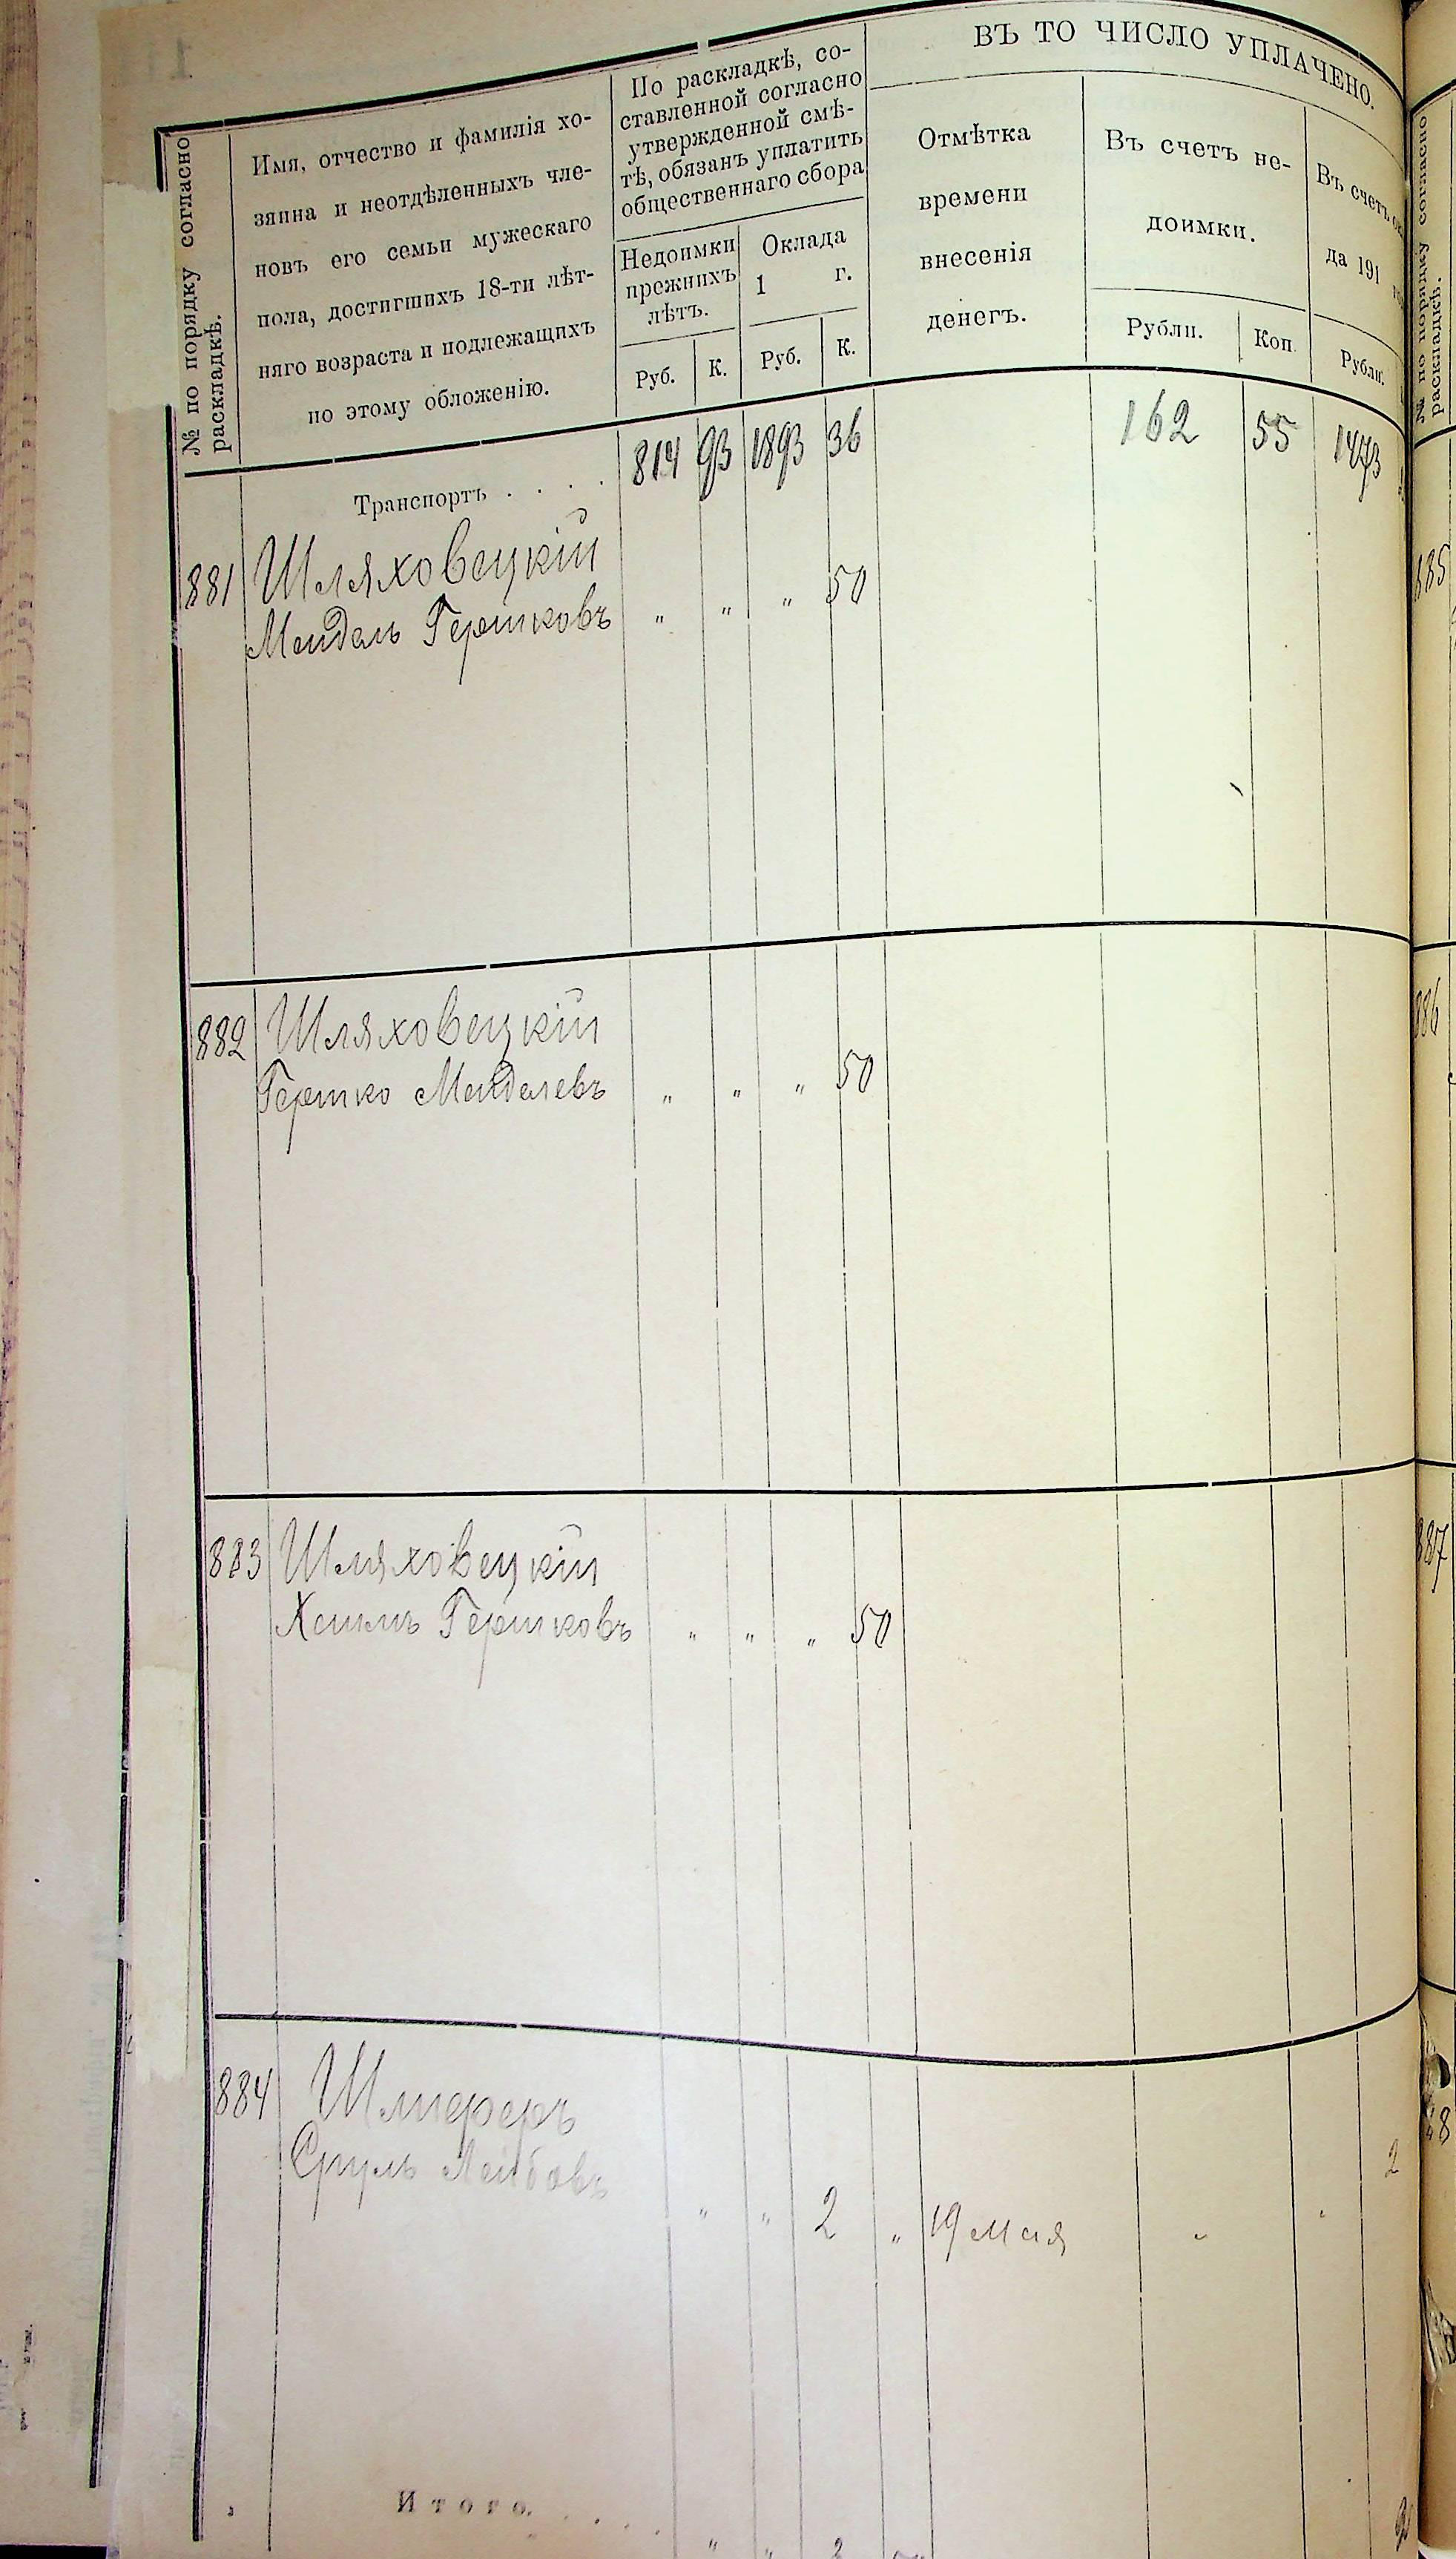 ВЪ ТО ЧИСЛО УПЛАЧЕНО.
№ по порядку согласно
раскладкѣ.
Имя, отчество и фамилія хо-
зяина и неотдѣленныхъ чле-
новъ его семьи мужескаго
пола, достигшихъ 18-ти лѣт-
няго возраста и подлежащихъ
по этому обложенію.
По раскладкѣ, со-
ставленной согласно
утвержденной смѣ-
тѣ, обязанъ уплатить
общественнаго сбора
Недоимки
прежнихъ
лѣтъ.
Оклада
1 г.
Руб. К. Руб. К.
Отмѣтка
времени
внесенія
денегъ.
Въ счетъ не-
доимки.
Рубли. Коп.
Въ счетъ
да 191
Рубли.
Транспортъ . . . . 814 93 1893 36 162 55 1473
881 Шляховецкій
Мендель Гершковъ „ „ „ 50
882 Шляховецкій
Гершко Менделевъ „ „ „ 50
883 Шляховецкій
Хаимъ Гершковъ „ „ „ 50
884 Шлиферъ
Сруль Лейбовъ
„ „ 2 „ 19 мая 2
Итого. . . . .
№ по порядку согласно
раскладкѣ.
885
886
887